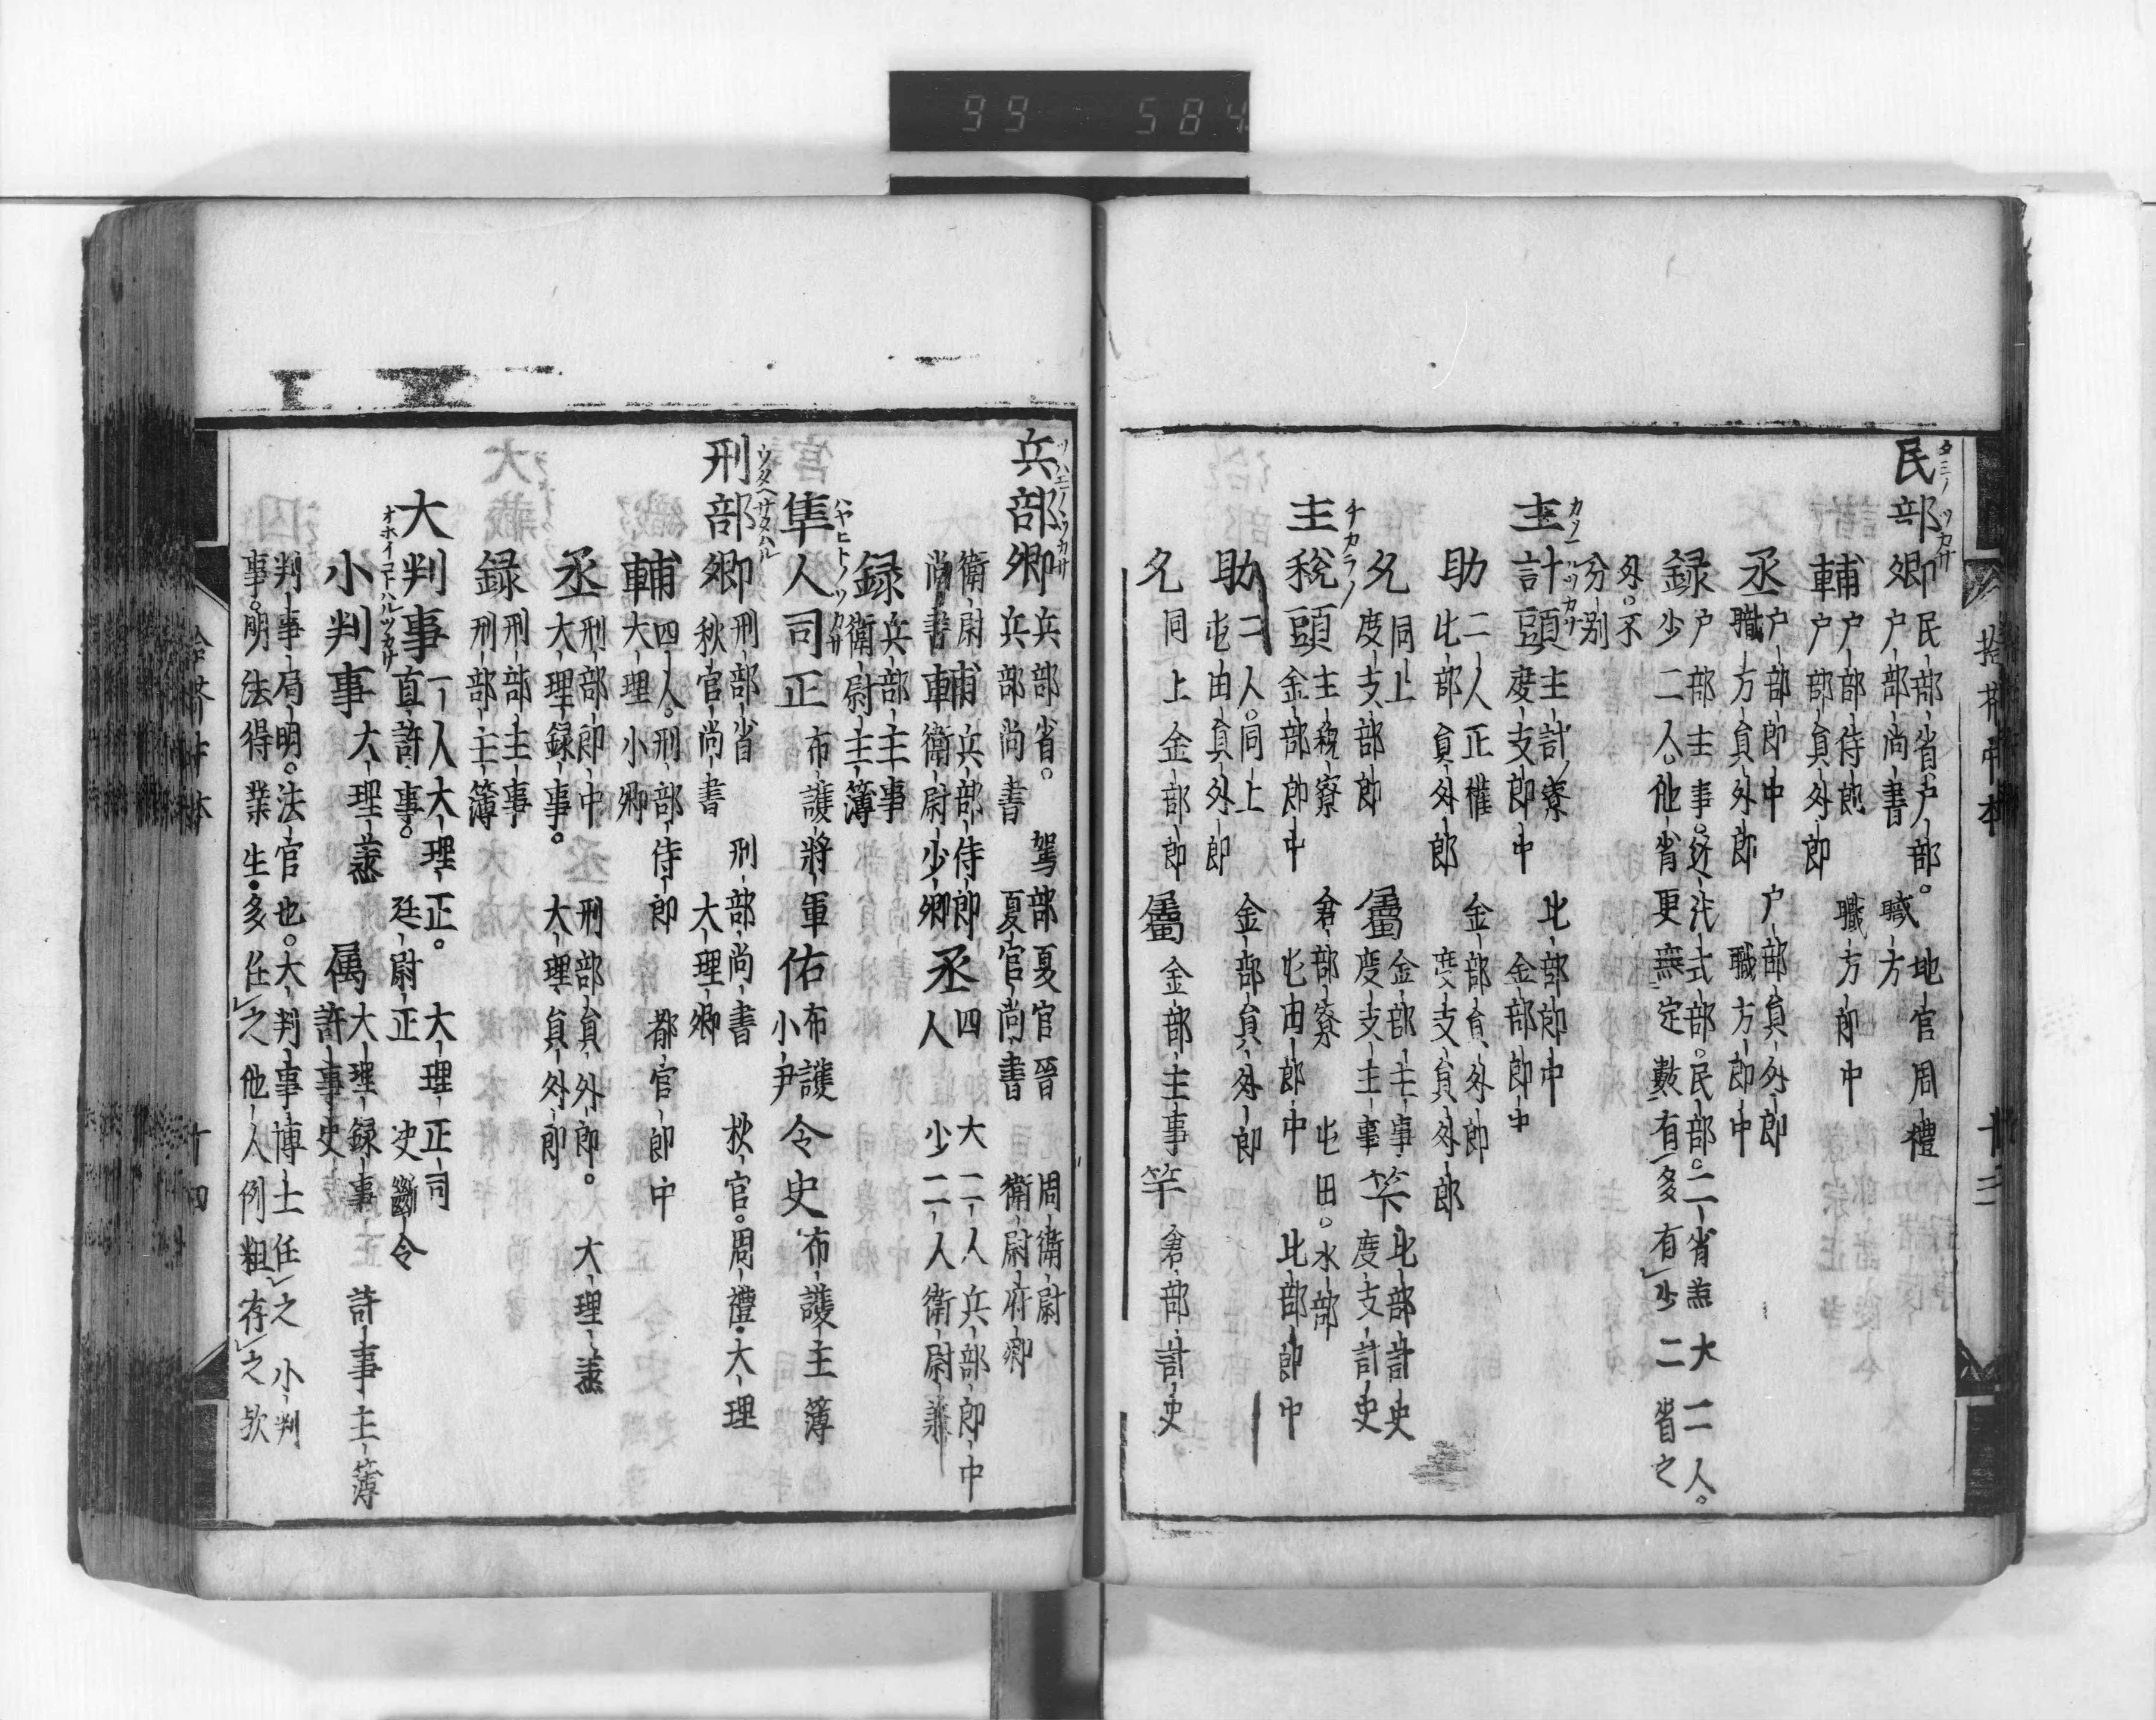 99 584
民部卿 民部省戸部。 地官周禮
タミノツカサ
戸部尚書 職方
輔 戸部侍郎 職方郎中
戸部員外郎
丞 戸部郎中 戸部員外郎
職方員外郎 職方郎中
録 戸部主事。近代式部。民部。二省無大二人。
少二人。他省更無定數有多有少二省之
外。不
分別
主計頭 主計寮 比部郎中
カソヘツカサ
度支郎中 金部郎中
助 二人正権 金部員外郎
比部員外郎 度支員外郎
允 同上 属 金部主事 竿 比部計史
度支部郎 度支主事 度支計史
主税頭 主税寮 倉部寮 屯田。水部
チカラノ
金部郎中 屯田郎中 比部郎中
助 二人。同上 金部員外郎
屯田員外郎
允 同上金部郎 属 金部主事 竿 倉部計史
兵部卿 兵部省。 駕部夏官晉 周衛尉
ツハモノノツカサ
兵部尚書 夏官尚書 衛尉府卿
衛尉 輔 兵部侍郎 丞 四 大二人兵部郎中
尚書 衛尉少卿 人 少二人衛尉丞
録 兵部主事
衛尉主簿
隼人司正 布護將軍 佑 布護 令史 布護主簿
ハヤヒトノツカサ
小尹
刑部卿 刑部省 刑部尚書 秋官。周禮。大理
ウタヘサタムル
秋官尚書 大理卿
輔 四人。刑部侍郎 都官郎中
大理小卿
丞 刑部郎中 刑部員外郎。 大理丞
大理録事。 大理員外郎
録 刑部主事
刑部主簿
大判事 一人大理正。 大理正司
直許事。 廷尉正 決斷令
小判事 大理丞 属 大理録事 許事主簿
許事史
判事局明。法官也。大判事博士任之 小判
事。明法得業生。多任之他人例粗存之欤